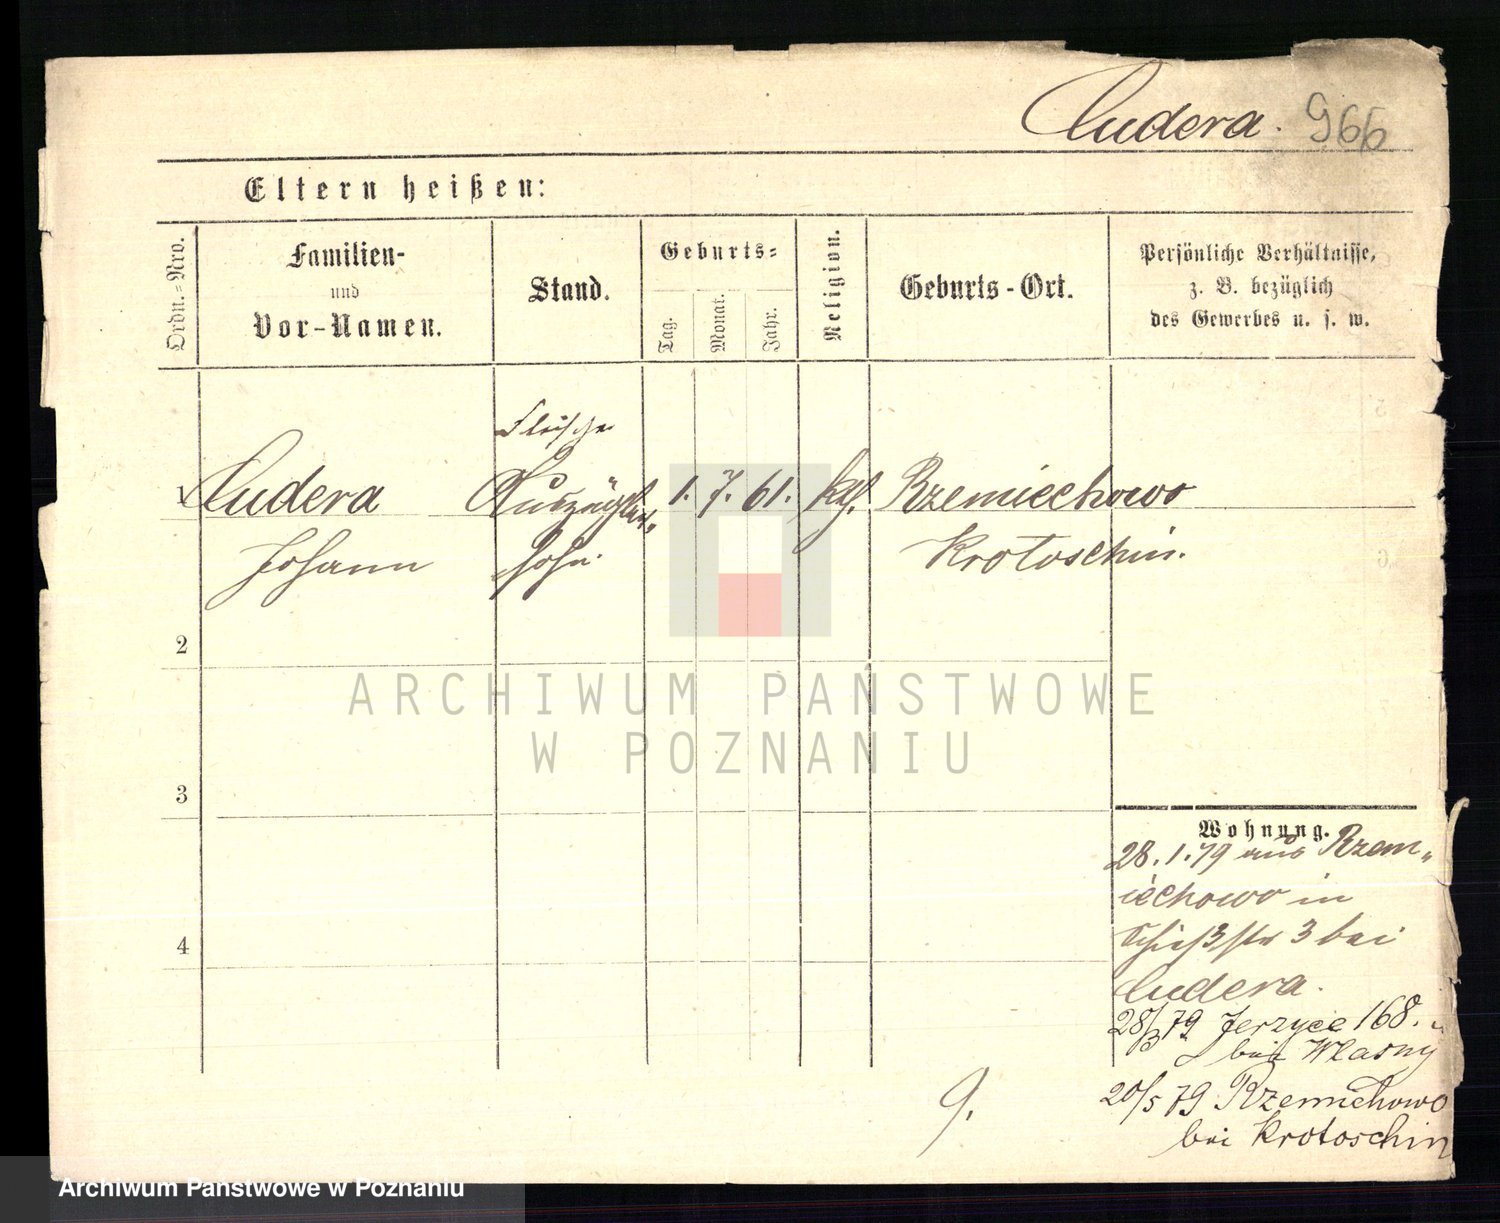 Cudera. 966
Eltern heißen:
Ordn.-Nro.
Familien-
und
Vor-Namen.
Stand.
Geburts-
Tag.
Monat.
Jahr.
Religion.
Geburts-Ort.
Persönliche Verhältnisse,
z. B. bezüglich
des Gewerbes u. s. w.
Fleischer
1 Cudera Auszüglers- 1. 7. 61. kth. Rzemiechowo
Johann Sohn Krotoschin.
2
3
4
Wohnung.
28.1.79 aus Rzem-
iechowo in
Schießstr 3 bei
Cudera.
28/3 79 Jerzyce 168.
bei Wlasny
20/5 79 Rzemiechowo
bei Krotoschin
9.
ARCHIWUM PAŃSTWOWE
W POZNANIU
Archiwum Państwowe w Poznaniu